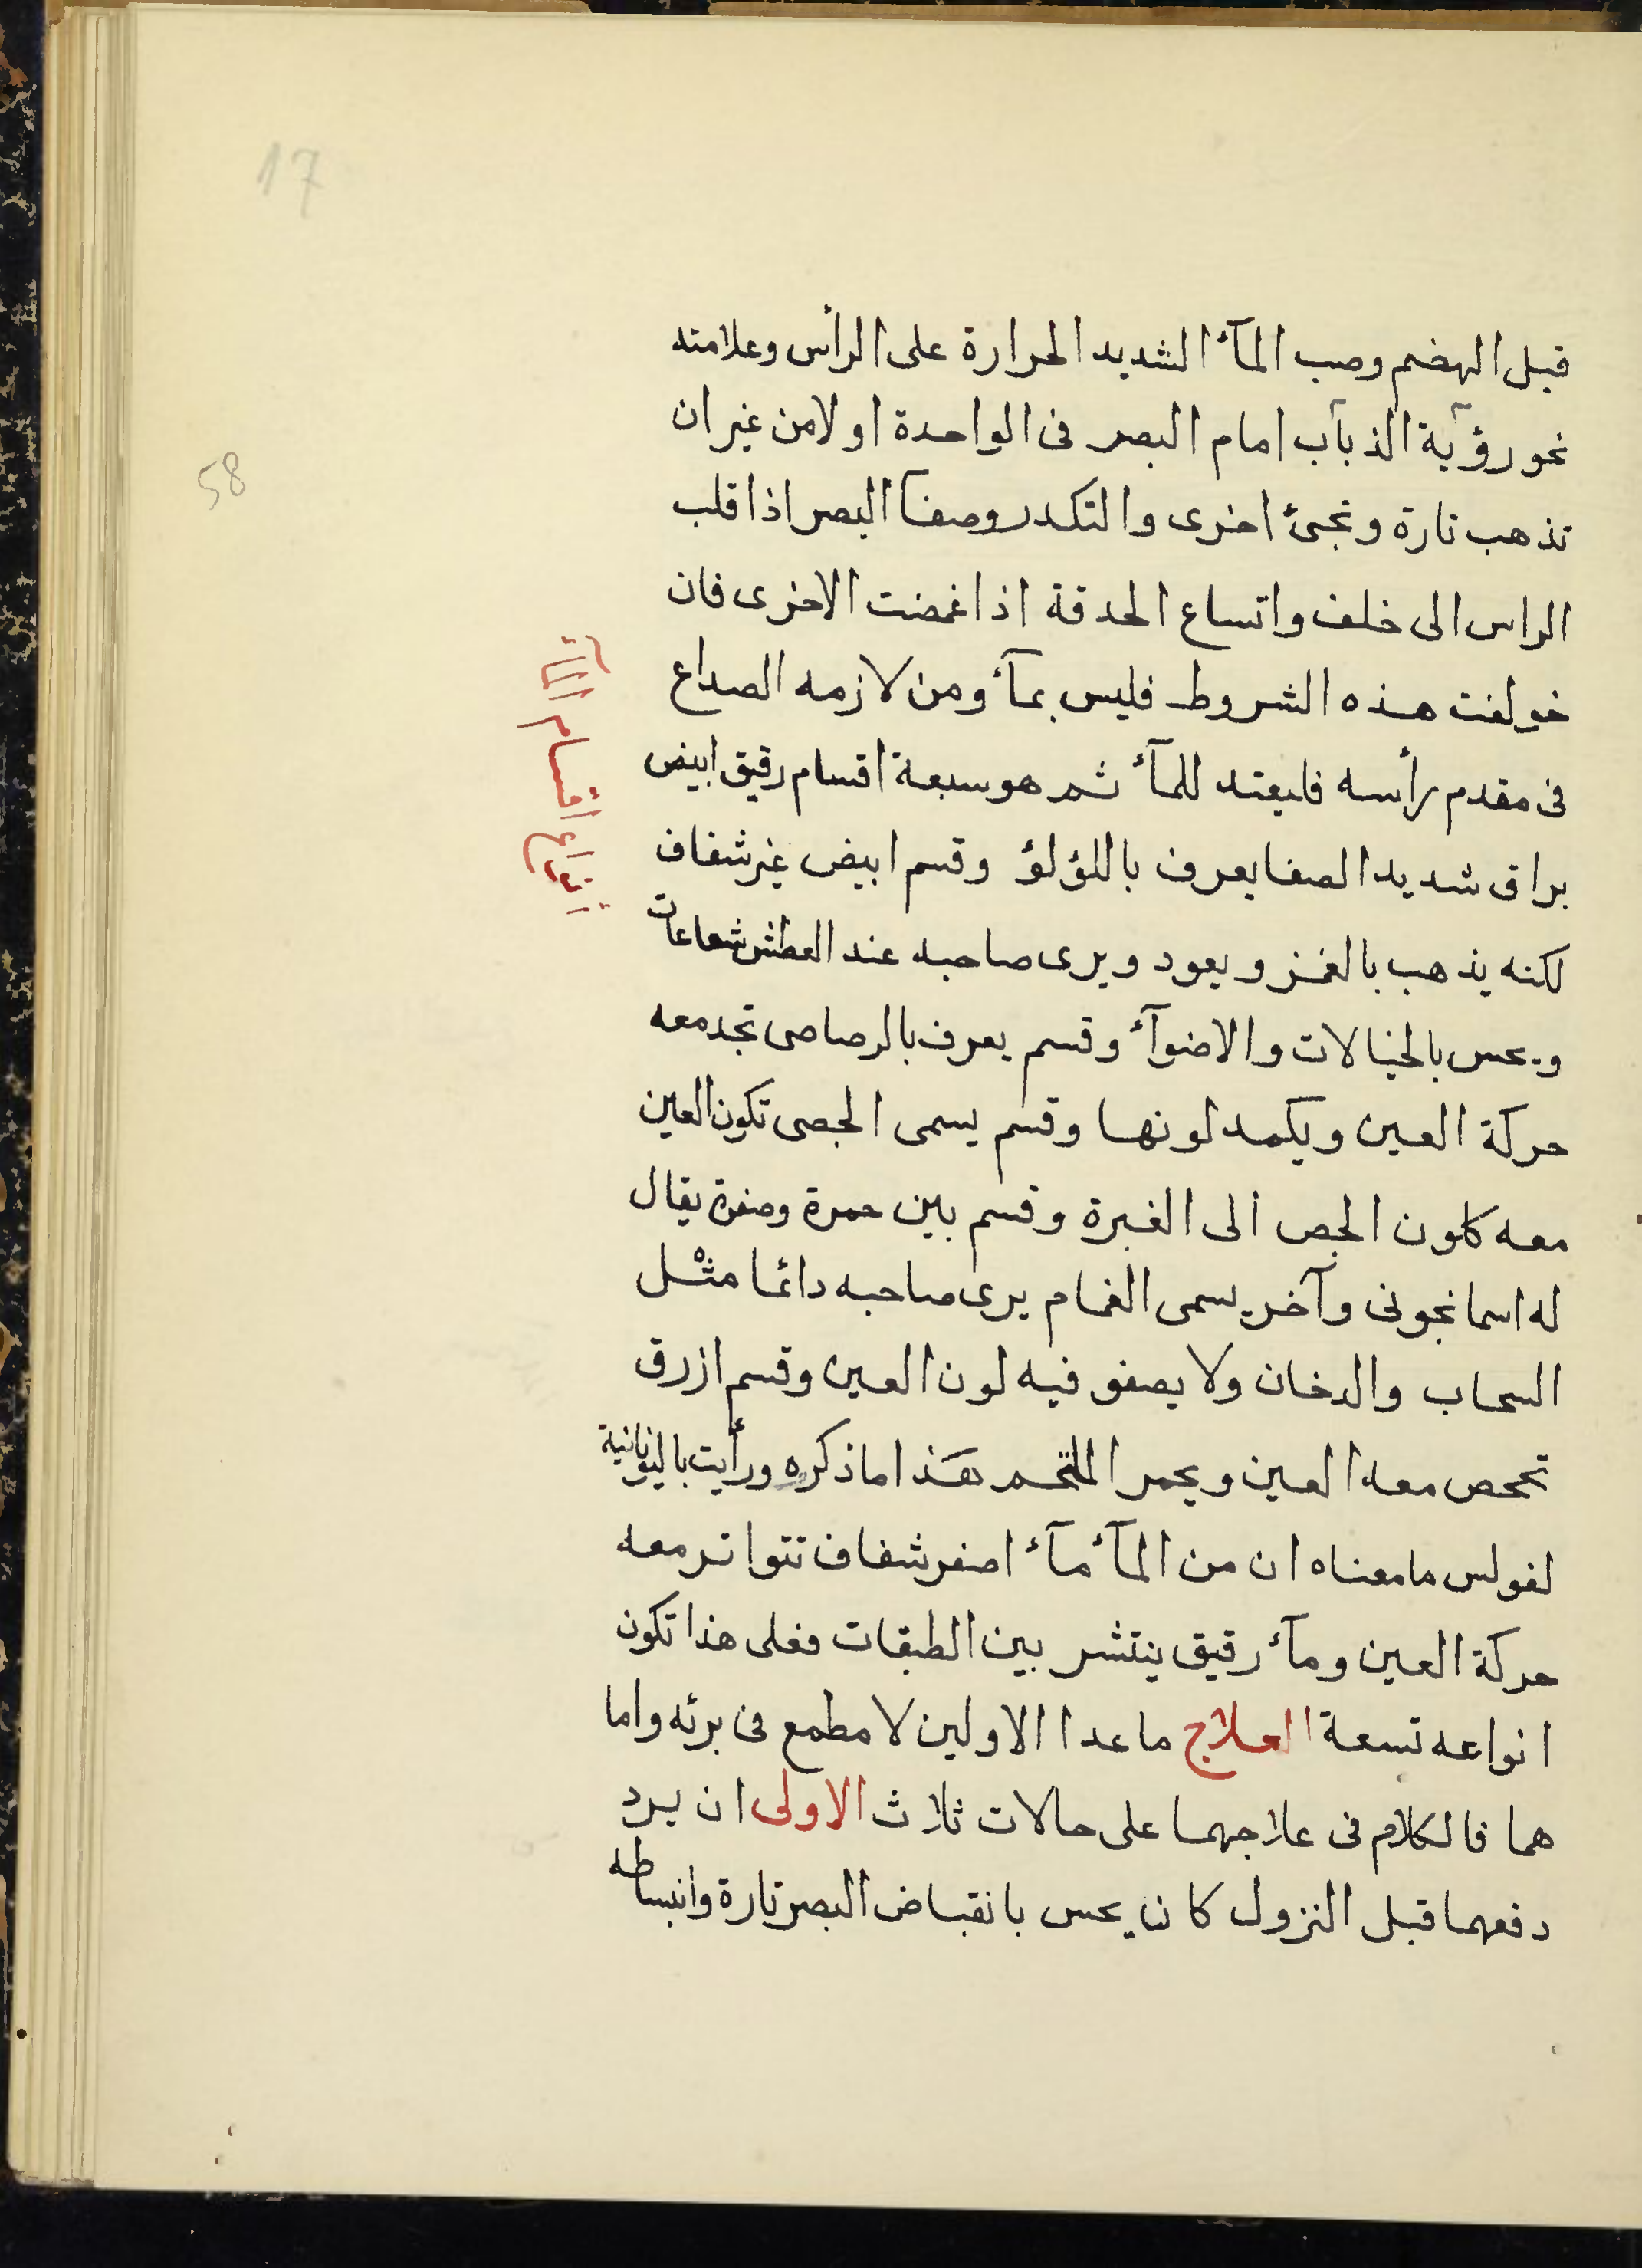 17
58
قبل الهضم وصب المآء الشديد الحرارة على الرأس وعلامته
نحو رؤية الذباب امام البصر فى الواحدة اولا من غير ان
تذهب تارة وتجئ اخرى والتكدر وصفآ البصر اذا قلب
الراس الى خلف واتساع الحدقة اذا غمضت الاخرى فان
خولفت هذه الشروط فليس بمآء ومن لازمه الصداع
فى مقدم رأسه فليعتد للمآء ثم هو سبعة اقسام رقيق ابيض
براق شديد الصفا يعرف باللؤلؤ وقسم ابيض غير شفاف
لكنه يذهب بالغمز ويعود ويرى صاحبه عند العطش شعاعات
ويحس بالخيالات والاضوآء وقسم يعرف بالرصاصى تجد معه
حركة العين ويكمد لونها وقسم يسمى الجصى تكون العين
معه كلون الجص الى الغبرة وقسم بين حمرة وصفرة يقال
له اسمانجونى وآخر يسمى الغمام يرى صاحبه دائما مثل
السحاب والدخان ولا يصفو فيه لون العين وقسم ازرق
تحص معه العين ويحمر الملتحم هذا ما ذكره ورأيت باليونانية
لفولس ما معناه ان من المآء مآء اصفر شفاف تتواتر معه
حركة العين ومآء رقيق ينتشر بين الطبقات فعلى هذا تكون
انواعه تسعة العلاج ما عدا الاولين لا مطمع فى برئه واما
هما فالكلام فى علاجهما على حالات ثلاث الاولى ان يرد
دفعهما قبل النزول كان يحس بانقباض البصر تارة وانبساطه
انواع اقسام المآء